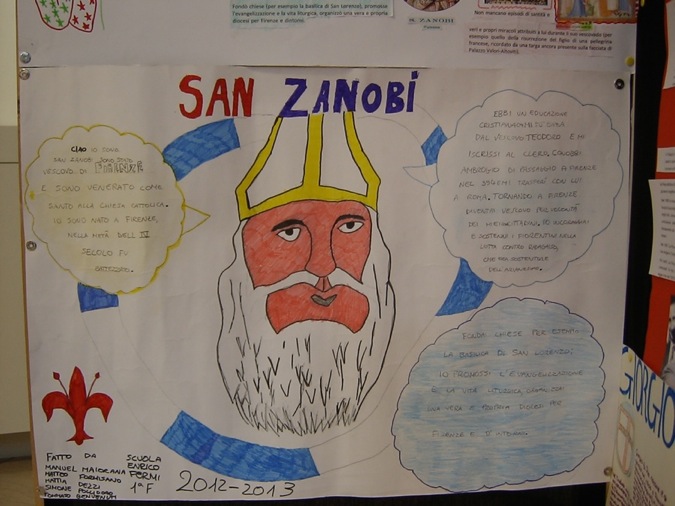 Fondò chiese (per esempio la Basilica di San Lorenzo), promosse
l'evangelizzazione e la vita liturgica, organizzò una vera e propria
diocesi per Firenze e dintorni.
S. ZANOBI
Non mancano episodi di santità e
veri e propri miracoli attribuiti a lui durante il suo vescovado (per
esempio quello della risurrezione del figlio di una pellegrina
francese, ricordato da una targa ancora presente sulla facciata di
Palazzo Valori-Altoviti).
SAN ZANOBI
CIAO IO SONO
SAN ZANOBI SONO STATO
VESCOVO DI FIRENZE
E SONO VENERATO COME
SANTO ALLA CHIESA CATTOLICA.
IO SONO NATO A FIRENZE,
NELLA METÀ DELL IV
SECOLO FU
EBBI UN EDUCAZIONE
DAL VESCOVO TEODORO E MI
ISCRISSI AL CLERO, CONOBBI
AMBROGIO DI PASSAGGIO A FIRENZE
NEL 394 EMI TRASFERÌ CON LUI
A ROMA, TORNANDO A FIRENZE
DIVENTAI VESCOVO PER VOLONTÀ
DEI MIEI CITTADINI, PO INCORAGGIAI
E SOSTENNI I FIORENTINI NELLA
LOTTA CONTRO RADAGASIO,
CHE ERA SOSTENITORE
DELL'ARIANESIMO.
FONDAI CHIESE PER ESEMPIO
LA BASILICA DI SAN LORENZO;
IO PROMOSSI L'EVANGELIZZAZIONE
E LA VITA LITURGICA, ORGANIZZAI
UNA VERA E PROPRIA DIOCESI PER
FIRENZE E DINTORNI.
FATTO DA
MANUEL MAIORANA
MATTEO FORMISANO
MATTIA DEZZI
SIMONE POGGIOBO
TOMMASO BENVENUTI
SCUOLA
ENRICO
FERMI
1ªF
2012-2013
GIORGIO